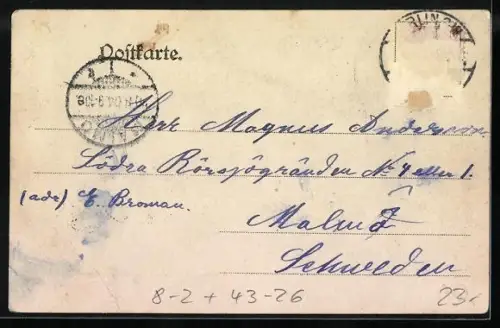 Postkarte.
Herr Magnus Andersson.
Södra Rörsjögränden No 4 eller 1.
(adr) E. Broman.
Malmö
Schweden
8-2 + 43-26
23,-